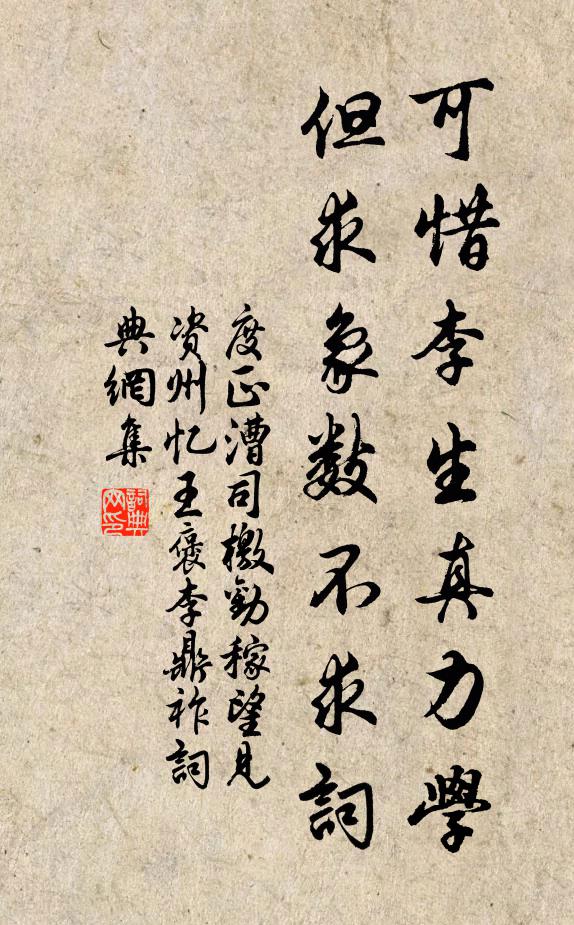 可惜李生真力學
但求象數不求詞
度正漕司檄勸稼望見
資州忆王褒李鼎祚詞
典網集
詞典网印